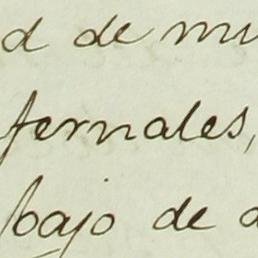 d de mu
fernales,
bajo de d